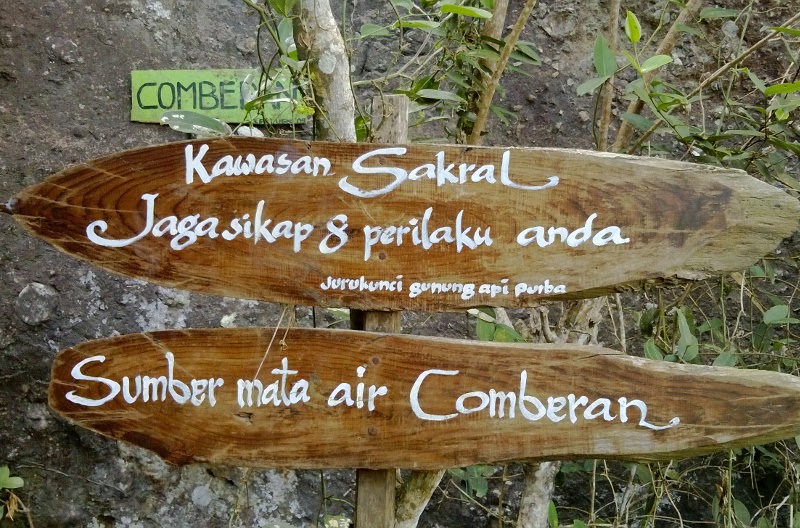 COMBERAN
Kawasan Sakral
Jaga sikap & perilaku anda
Jurukunci gunung api purba
Sumber mata air Comberan